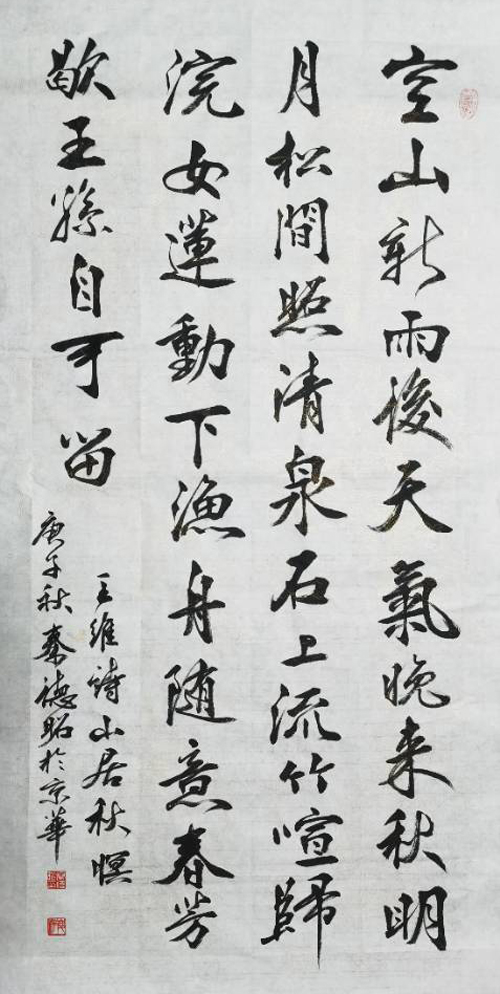 空山新雨後天氣晚来秋明
月松間照清泉石上流竹喧歸
浣女蓮動下漁舟随意春芳
歇王孫自可留
王維詩山居秋暝
庚子秋秦德昭於京華